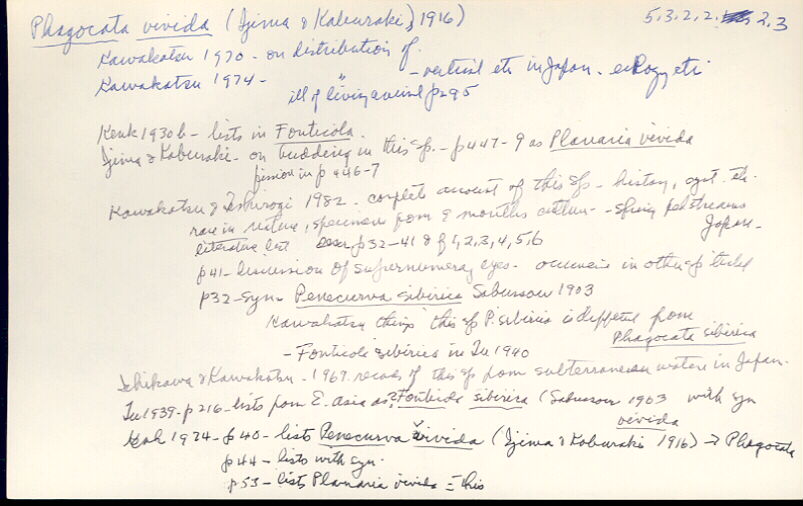 Phagocata vivida (Ijima & Kaburaki, 1916) 5,3.2.2. 2,3
Kawakatsu 1970 - on distribution of.
Kawakatsu 1974 - " - vertical etc in Japan.
ill of living animal p295
Kenk 1930b - lists in Fonticola.
Ijima & Kaburaki - on budding in this sp. - p447-9 as Planaria vivida
fission in p 446-7
Kawakatsu & 1982 - complete account of this sp - history, syst. etc.
rare in nature, specimens from 9 months culture - spring fed streams
Japan -
literature list p32-41 & f 1,2,3,4,5,6
p41 - discussion of supernumerary eyes - in other sp
p32 - syn - Penecurva sibirica Sabussow 1903
Kawakatsu thinks this sp P. sibirica is different from
Phagocata sibirica
- Fonticola sibirica in Tu 1940
Ichikawa & Kawakatsu - 1967. records of this sp from subterranean waters in Japan.
Tu 1939 - p216 - lists from E. Asia as ? Fonticola sibirica (Sabussow 1903 with syn
vivida
1974 - p40 - lists Penecurva vivida (Ijima & Kaburaki 1916) → Phagocata
p44 - lists with syn.
p53 - lists Planaria vivida = this